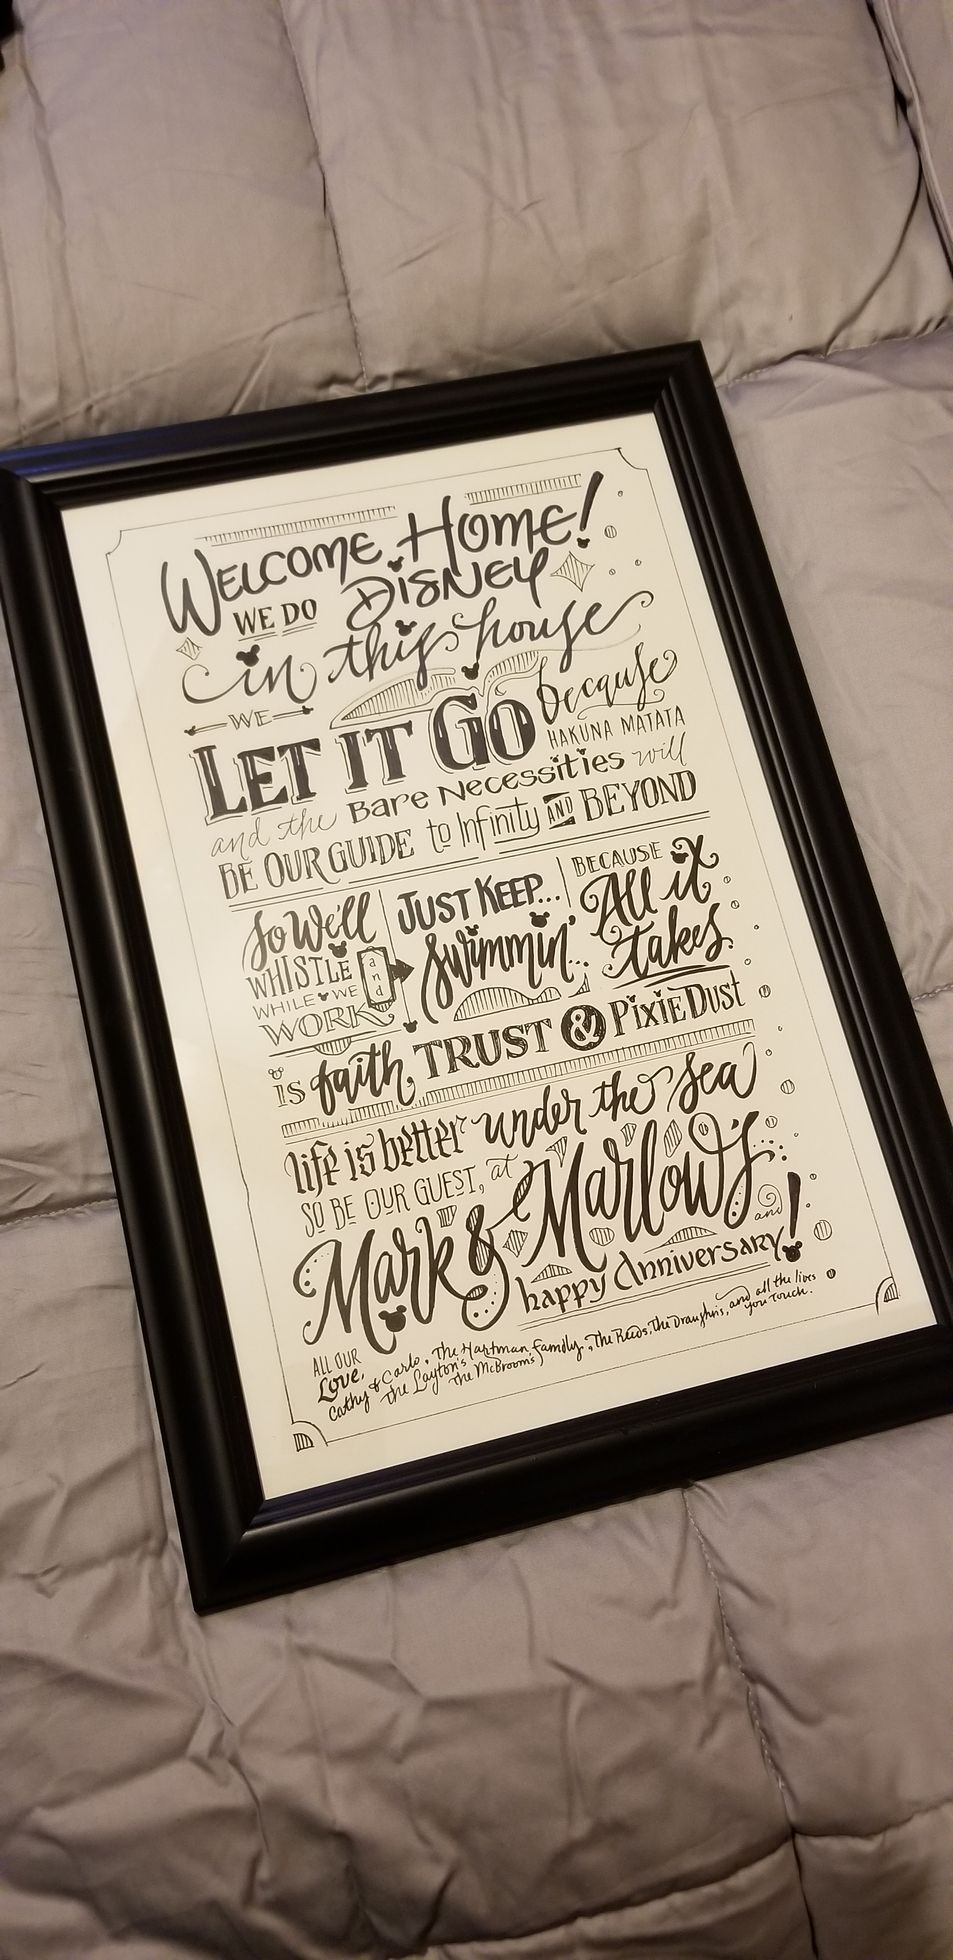 Welcome Home!
WE DO DISNEY
in this house
WE
LET IT GO because
HAKUNA MATATA
and the Bare Necessities will
BE OUR GUIDE to Infinity AND BEYOND
So We'll
WHISTLE
WHILE WE
WORK
and
JUST KEEP...
Swimmin'...
BECAUSE
All it
takes
is faith, TRUST & PIXIE DUST
life is better under the sea
SO BE OUR GUEST, at
Mark & Marlow's
and
happy Anniversary!
ALL OUR
Love,
Cathy & Carlo, The Hartman family, The Reeds, the Draughns, and all the lives
the Layton's
the McBrooms
you touch.